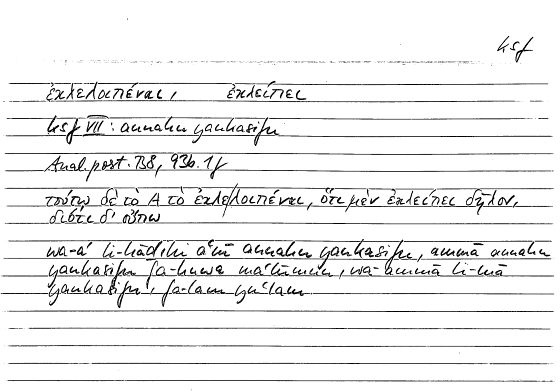 ksf
ἐκλελοιπέναι, ἐκλείπει
ksf VII: annahu yankasifu
Anal. post. B8, 93b. 1f
τούτῳ δὲ τὸ A τὸ ἐκλελοιπέναι, ὅτι μὲν ἐκλείπει δῆλον,
διότι δ' οὔπω
wa-a li-hādihi a'nī annahu yankasifu, ammā annahu
yankasifu fa-huwa ma'lūmun, wa-ammā li-mā
yankasifu, fa-lam yu'lam